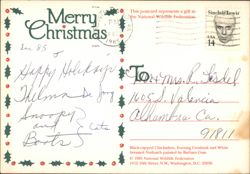 Merry
Christmas
Dec 85
Happy Holidays
Thelma De Joy
Snoopy
and Cats
Boots
This postcard represents a gift to
the National Wildlife Federation.
Sinclair Lewis
USA
14
To:
Mr + Mrs. R.
1605 S. Valencia
Alhambra Ca.
91811
Black-capped Chickadee, Evening Grosbeak and White
breasted Nuthatch painted by
© 1985 National Wildlife Federation
1412 16th Street N.W., Washington, D.C. 20036